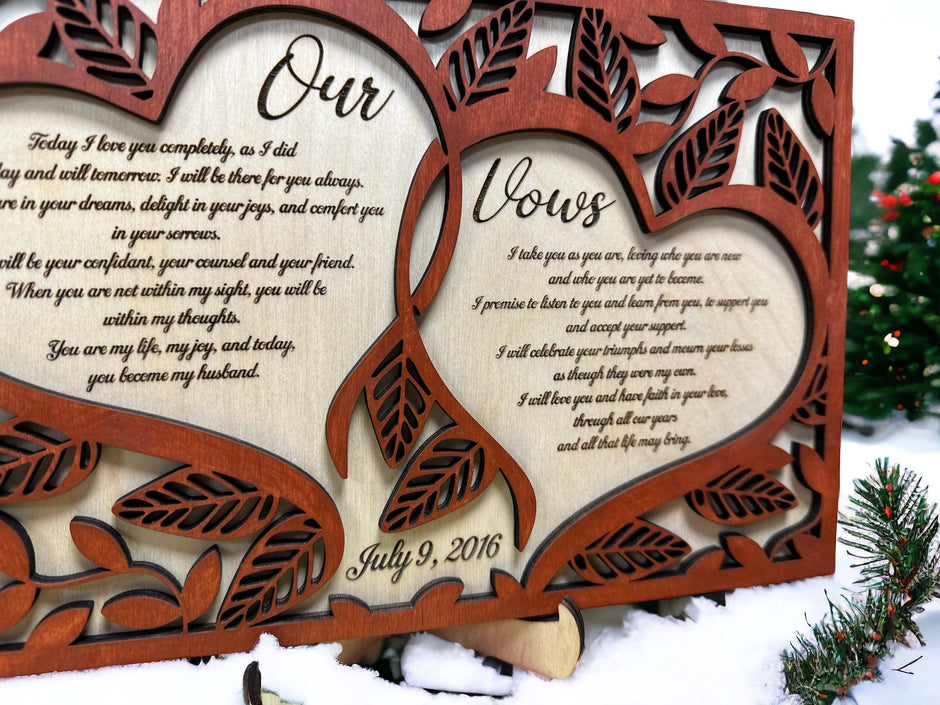 Our
Today I love you completely, as I did
and will tomorrow. I will be there for you always.
in your dreams, delight in your joys, and comfort you
in your sorrows.
will be your confidant, your counsel and your friend.
When you are not within my sight, you will be
within my thoughts.
You are my life, my joy, and today,
you become my husband.
Vows
I take you as you are, loving who you are now
and who you are yet to become.
I promise to listen to you and learn from you, to support you
and accept your support.
I will celebrate your triumphs and mourn your losses
as though they were my own.
I will love you and have faith in your love,
through all our years
and all that life may bring.
July 9, 2016